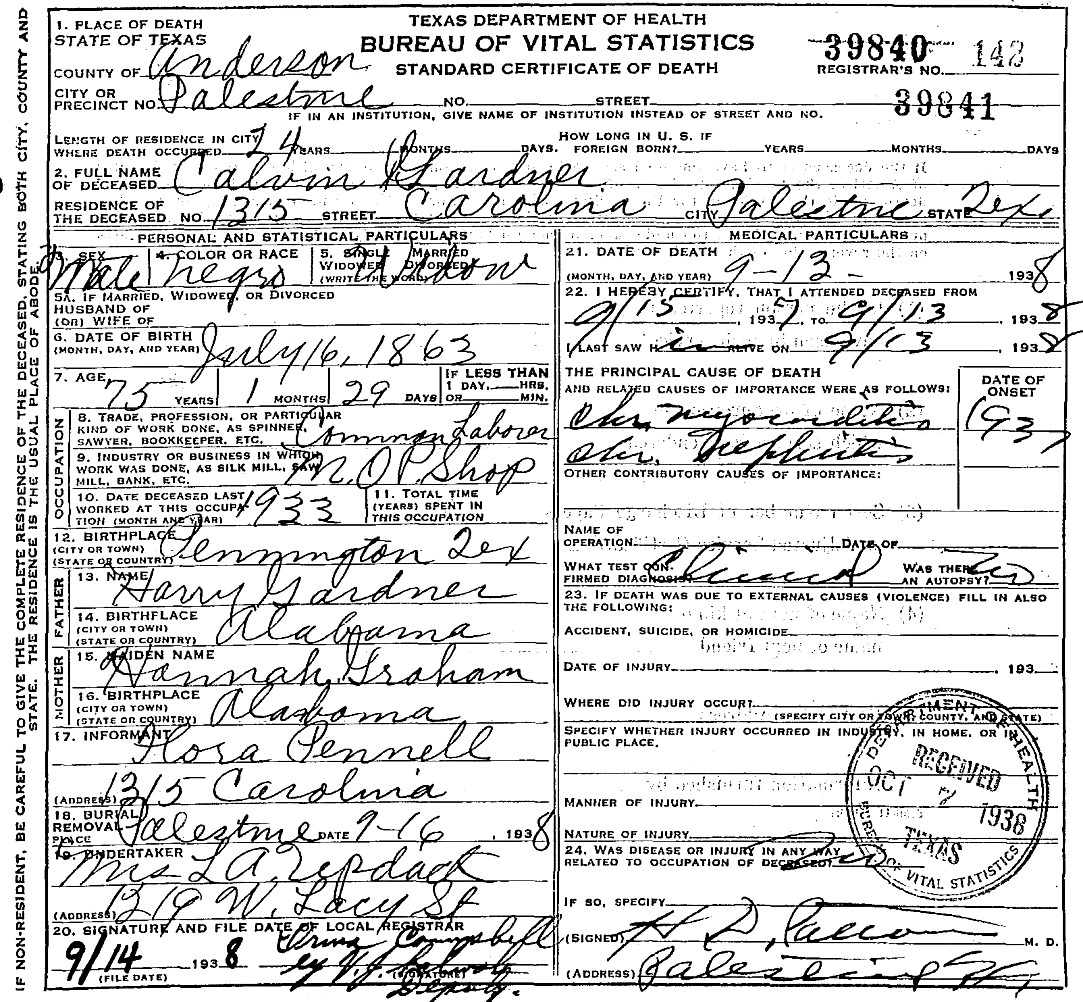 TEXAS DEPARTMENT OF HEALTH
BUREAU OF VITAL STATISTICS
STANDARD CERTIFICATE OF DEATH
39840 142
REGISTRAR'S NO.
39841
1. PLACE OF DEATH
STATE OF TEXAS
COUNTY OF Anderson
CITY OR
PRECINCT NO. Palestine NO. STREET
IF IN AN INSTITUTION, GIVE NAME OF INSTITUTION INSTEAD OF STREET AND NO.
LENGTH OF RESIDENCE IN CITY HOW LONG IN U. S. IF
WHERE DEATH OCCURRED 24 YEARS MONTHS DAYS. FOREIGN BORN? YEARS MONTHS DAYS
2. FULL NAME
OF DECEASED Calvin Gardner
RESIDENCE OF
THE DECEASED NO. 1315 STREET Carolina CITY Palestine STATE Tex
PERSONAL AND STATISTICAL PARTICULARS
3. SEX 4. COLOR OR RACE 5. SINGLE MARRIED
WIDOWED DIVORCED
(WRITE THE WORD)
Male Negro Widow
5A. IF MARRIED, WIDOWED, OR DIVORCED
HUSBAND OF
(OR) WIFE OF
6. DATE OF BIRTH
(MONTH, DAY, AND YEAR) July 16, 1863
7. AGE 75 YEARS 1 MONTHS 29 DAYS
IF LESS THAN
1 DAY, HRS.
OR MIN.
OCCUPATION
8. TRADE, PROFESSION, OR PARTICULAR
KIND OF WORK DONE, AS SPINNER,
SAWYER, BOOKKEEPER, ETC. Common Laborer
9. INDUSTRY OR BUSINESS IN WHICH
WORK WAS DONE, AS SILK MILL, SAW
MILL, BANK, ETC. M.O.P. Shop
10. DATE DECEASED LAST
WORKED AT THIS OCCUPA-
TION (MONTH AND YEAR) 1933
11. TOTAL TIME
(YEARS) SPENT IN
THIS OCCUPATION
12. BIRTHPLACE
(CITY OR TOWN)
(STATE OR COUNTRY) Pennington Tex
FATHER
13. NAME Harry Gardner
14. BIRTHPLACE
(CITY OR TOWN)
(STATE OR COUNTRY) Alabama
MOTHER
15. MAIDEN NAME Hannah Graham
16. BIRTHPLACE
(CITY OR TOWN)
(STATE OR COUNTRY) Alabama
17. INFORMANT Flora Pennell
(ADDRESS) 1315 Carolina
18. BURIAL
REMOVAL
PLACE Palestine DATE 9-16, 1938
19. UNDERTAKER Mrs L A
(ADDRESS) 1219 W. Lacy St
20. SIGNATURE AND FILE DATE OF LOCAL REGISTRAR
9/14 1938 Campbell
(FILE DATE) (SIGNATURE)
Deputy.
MEDICAL PARTICULARS
21. DATE OF DEATH
(MONTH, DAY, AND YEAR) 9-13- 1938
22. I HEREBY CERTIFY, THAT I ATTENDED DECEASED FROM
9/15, 1937, TO 9/13 1938
I LAST SAW H im ALIVE ON 9/13 1938
THE PRINCIPAL CAUSE OF DEATH
AND RELATED CAUSES OF IMPORTANCE WERE AS FOLLOWS:
DATE OF
ONSET
Chr. myocarditis 1937
Chr. Nephritis
OTHER CONTRIBUTORY CAUSES OF IMPORTANCE:
NAME OF
OPERATION DATE OF
WHAT TEST CON-
FIRMED DIAGNOSIS? Clinical
WAS THERE
AN AUTOPSY? No
23. IF DEATH WAS DUE TO EXTERNAL CAUSES (VIOLENCE) FILL IN ALSO
THE FOLLOWING:
ACCIDENT, SUICIDE, OR HOMICIDE
DATE OF INJURY 193
WHERE DID INJURY OCCUR?
(SPECIFY CITY OR TOWN, COUNTY, AND STATE)
SPECIFY WHETHER INJURY OCCURRED IN INDUSTRY, IN HOME, OR IN
PUBLIC PLACE.
MANNER OF INJURY
NATURE OF INJURY
24. WAS DISEASE OR INJURY IN ANY WAY
RELATED TO OCCUPATION OF DECEASED? No
IF SO, SPECIFY
(SIGNED) H D M. D.
(ADDRESS) Palestine
DEPARTMENT OF HEALTH
RECEIVED
OCT 7 1938
TEXAS
BUREAU OF VITAL STATISTICS
IF NON-RESIDENT, BE CAREFUL TO GIVE THE COMPLETE RESIDENCE OF THE DECEASED, STATING BOTH CITY, COUNTY AND
STATE. THE RESIDENCE IS THE USUAL PLACE OF ABODE.